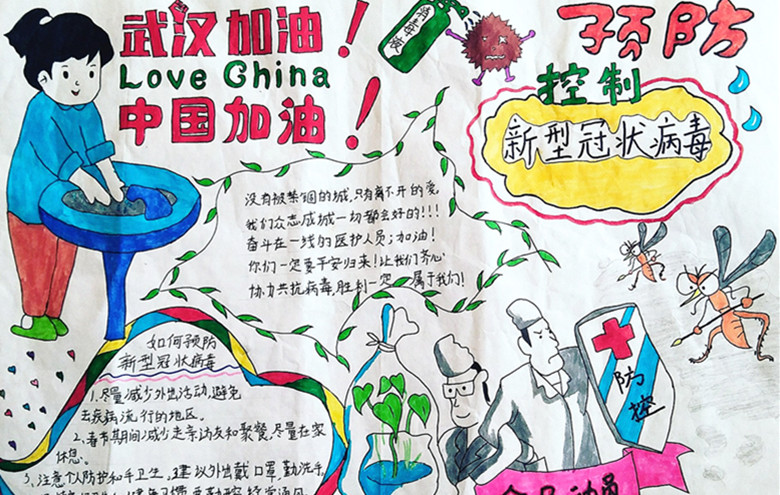 武汉加油！
Love China
中国加油！
消毒液
预防
控制
新型冠状病毒
没有被禁锢的城,只有离不开的爱
我们众志成城一切都会好的!!!
奋斗在一线的医护人员;加油!
你们一定要平安归来!让我们齐心
协力共抗病毒,胜利一定属于我们!
如何预防
新型冠状病毒
1.尽量减少外出活动,避免
去疾病流行的地区。
2、春节期间减少走亲访友和聚餐,尽量在家
休息。
3、注意个人防护和手卫生,建以外出戴口罩,勤洗手,
防控